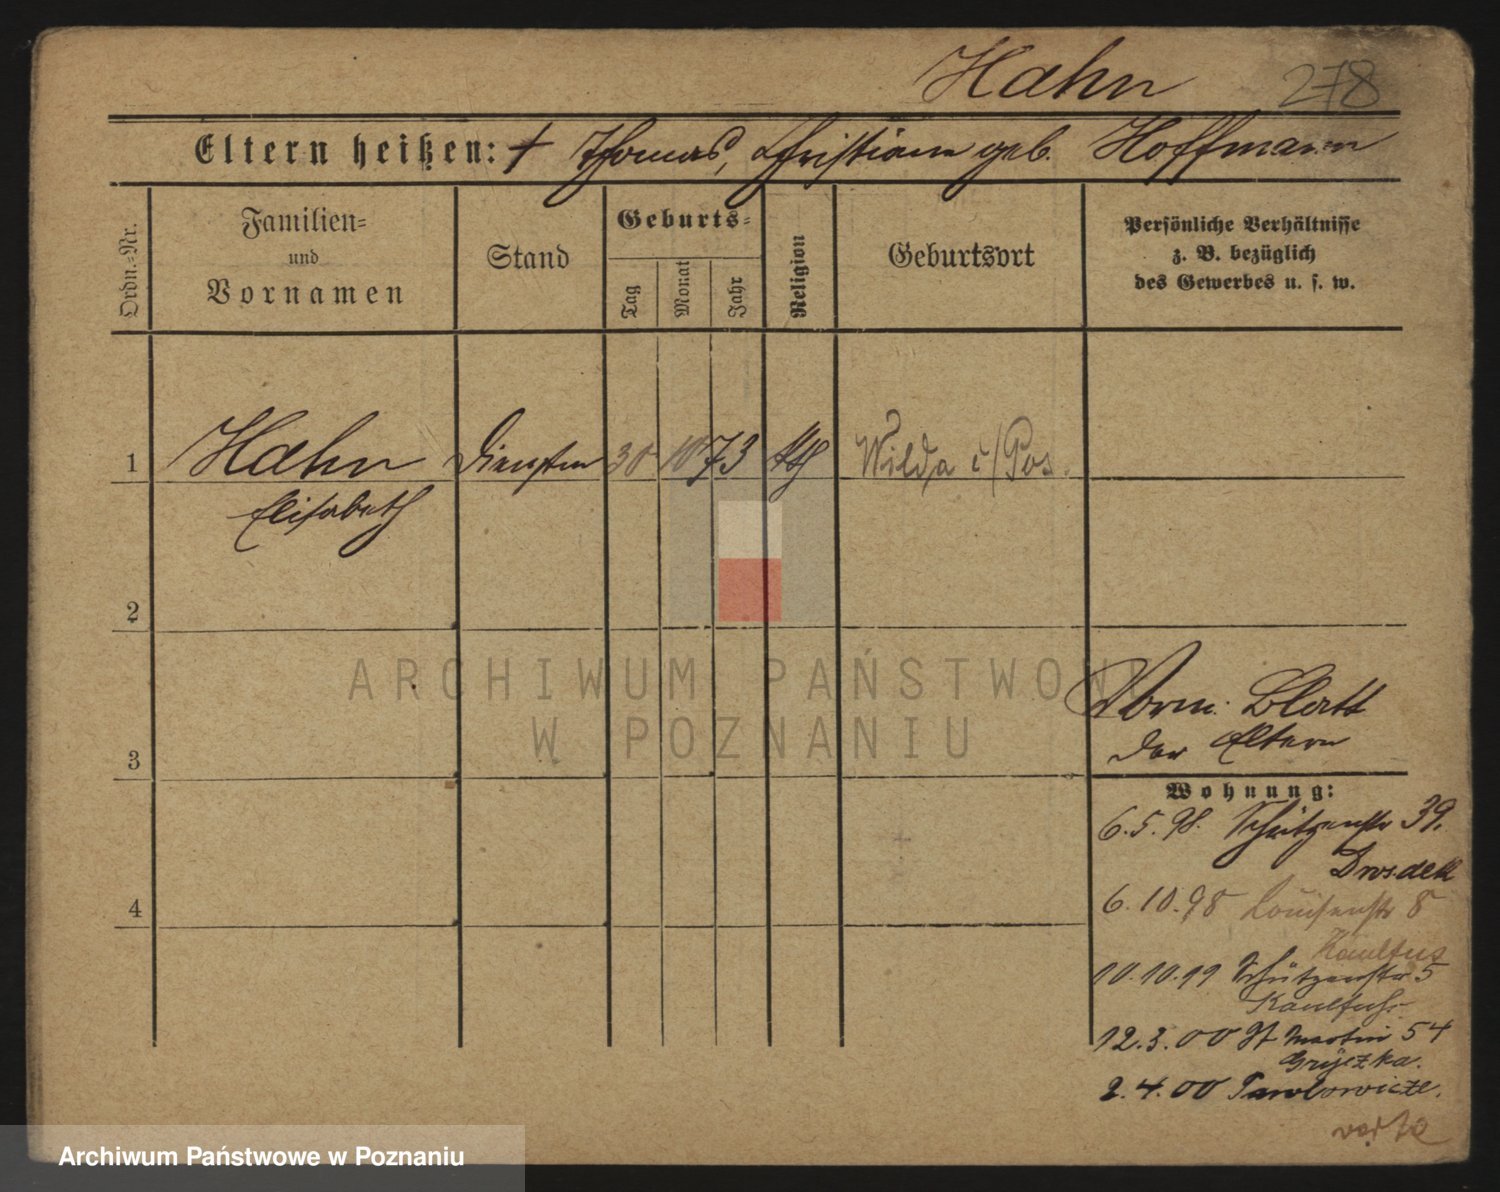 Hahn 278
Eltern heißen: † Thomas, Christiane geb. Hoffmann
Ordn.-Nr.
Familien-
und
Vornamen
Stand
Geburts-
Tag
Monat
Jahr
Religion
Geburtsort
Persönliche Verhältnisse
z. B. bezüglich
des Gewerbes u. s. w.
1 Hahn 30 10 73 kth Wilda b/Pos.
Elisabeth
2
3
4
Vorm. Blatt
der Eltern
Wohnung:
6.5.98. Schützenstr 39.
Drosdek
6.10.98 Louisenstr 8
Kaulfus
10.10.99 Schützenstr 5
Kaulfuss
12.3.00 St Martin 54
Gryezka.
2.4.00 Pawlowicze.
verte
ARCHIWUM PAŃSTWOWE
W POZNANIU
Archiwum Państwowe w Poznaniu